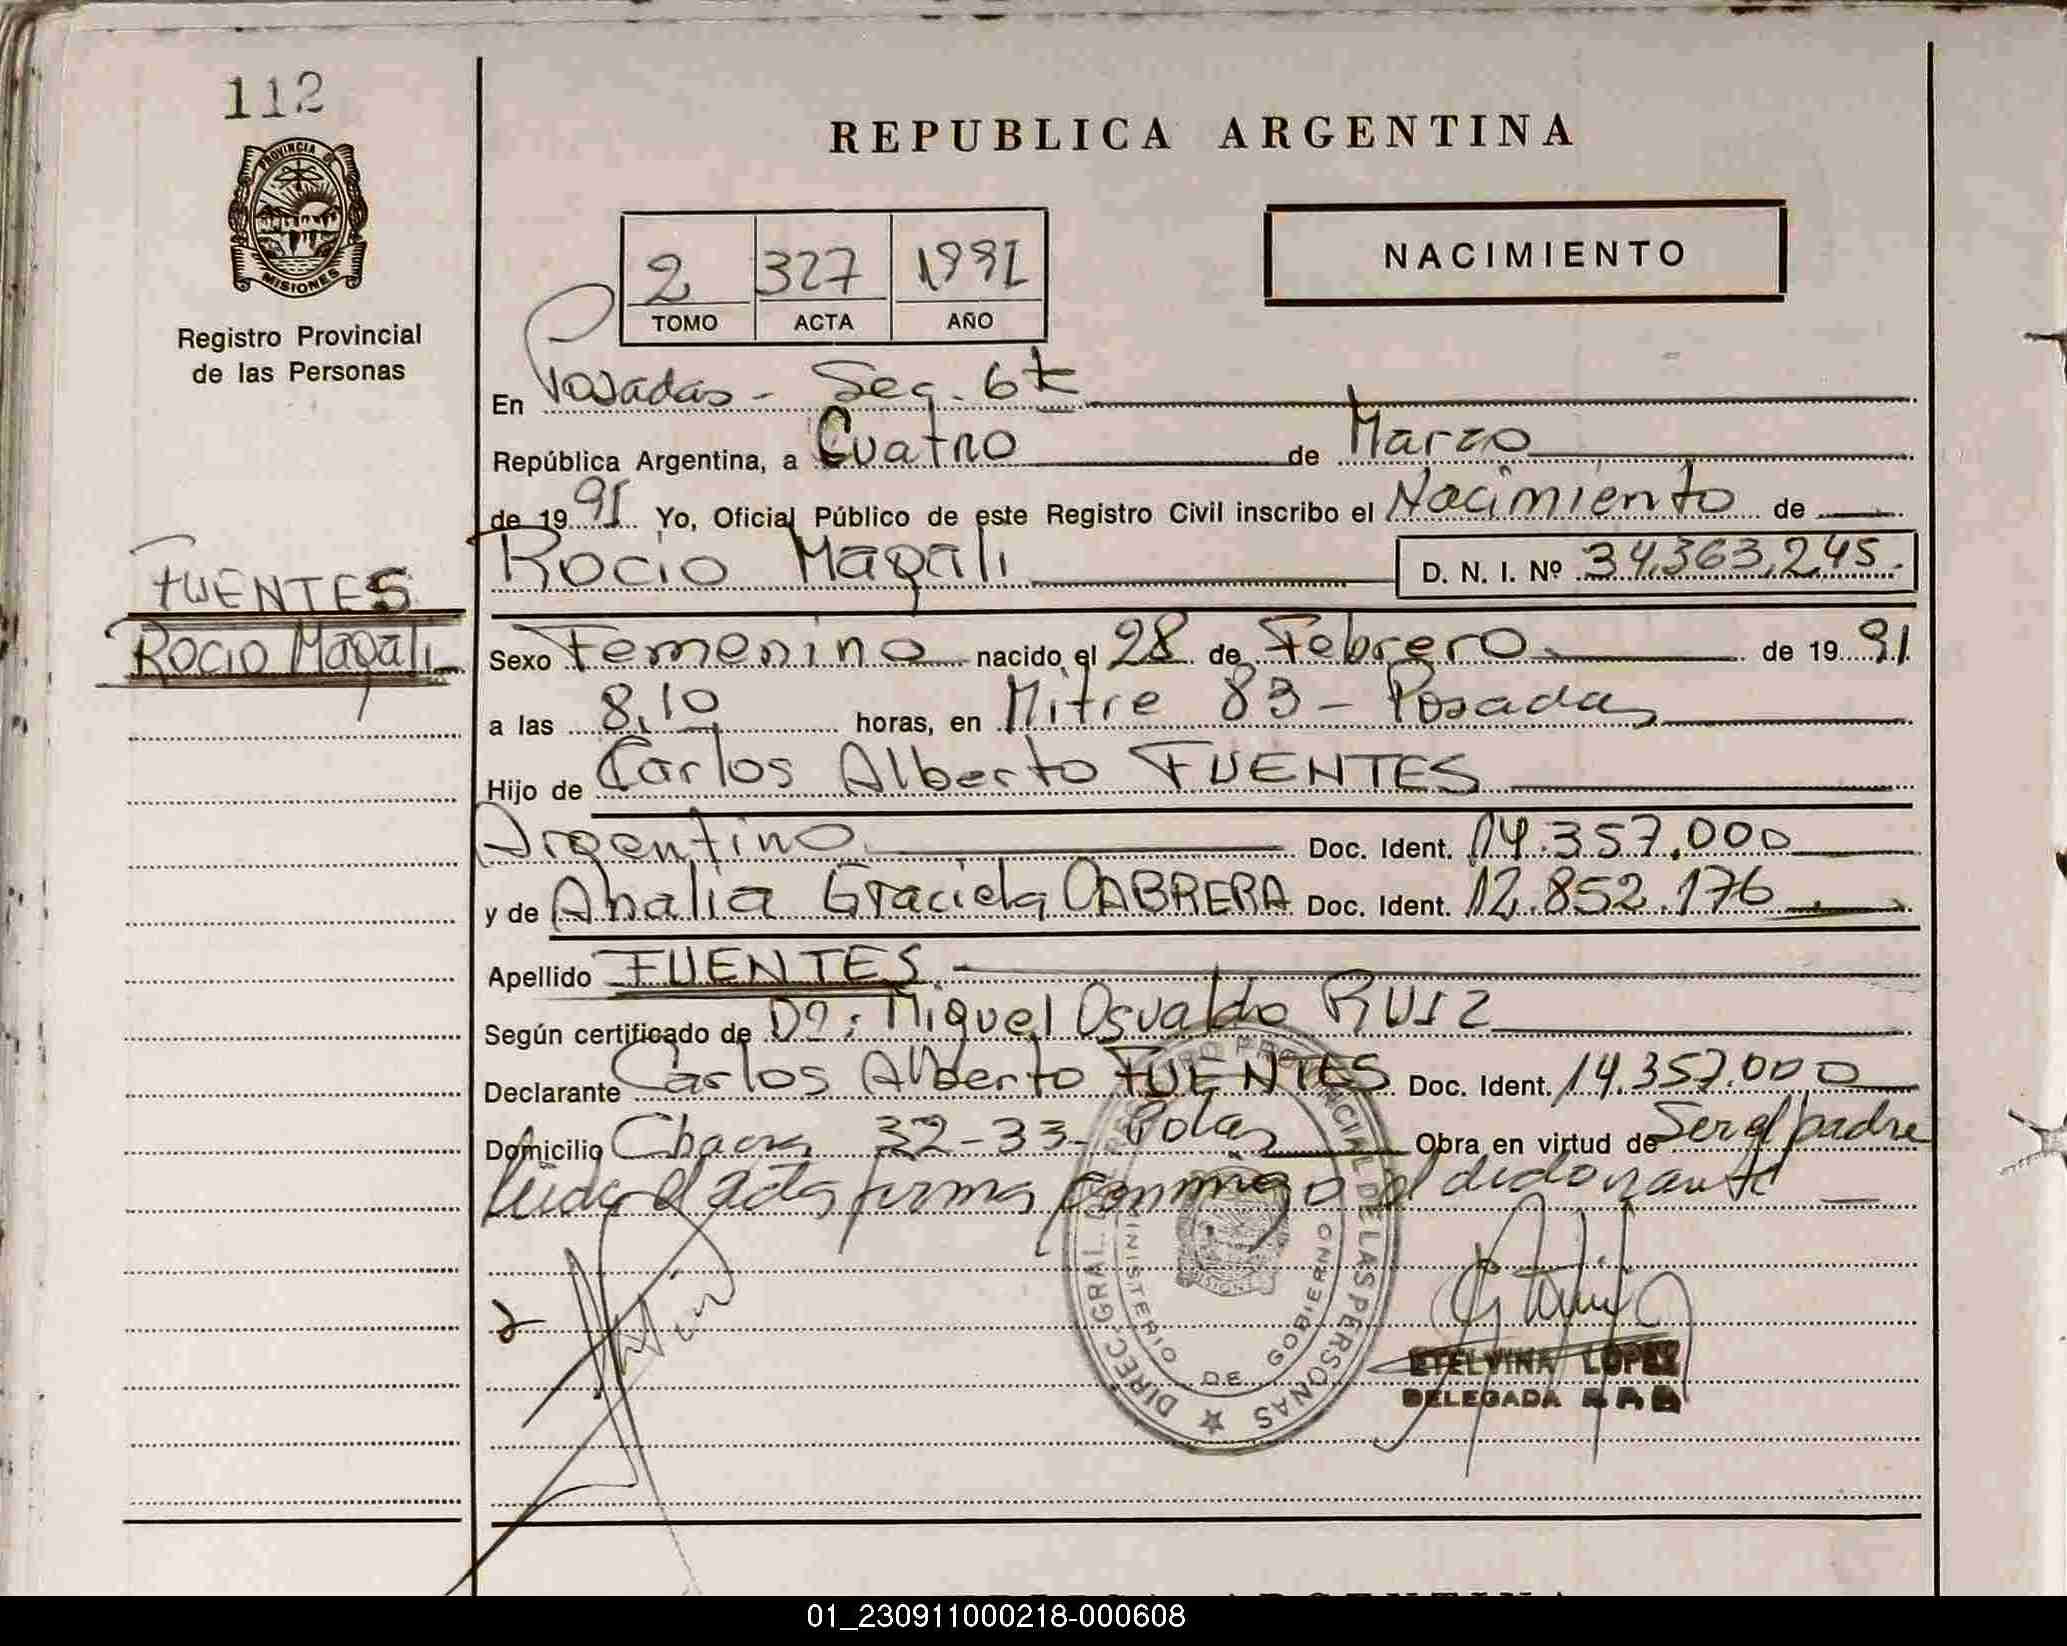 112
PROVINCIA DE
MISIONES
Registro Provincial
de las Personas
REPUBLICA ARGENTINA
NACIMIENTO
2 327 1991
TOMO ACTA AÑO
En Posadas - Sec. 6ta
República Argentina, a Cuatro de Marzo
de 1991 Yo, Oficial Público de este Registro Civil inscribo el Nacimiento de
Rocio Magali D. N. I. Nº 34.363.245.
FUENTES
Rocio Magali
Sexo Femenino nacido el 28 de Febrero de 1991
a las 8,10 horas, en Mitre 83 - Posadas
Hijo de Carlos Alberto FUENTES
Argentino Doc. Ident. 14.357.000
y de Analia Graciela CABRERA Doc. Ident. 12.852.176
Apellido FUENTES
Según certificado de Dº: Miguel Osvaldo RUIZ
Declarante Carlos Alberto FUENTES Doc. Ident. 14.357.000
Domicilio 32-33- Obra en virtud de Ser el padre
Leida el acta firma conmigo el
DIREC. GRAL. DEL REGISTRO PROVINCIAL DE LAS PERSONAS
MINISTERIO DE GOBIERNO
MISIONES
ETELVINA LOPEZ
DELEGADA
01_230911000218-000608